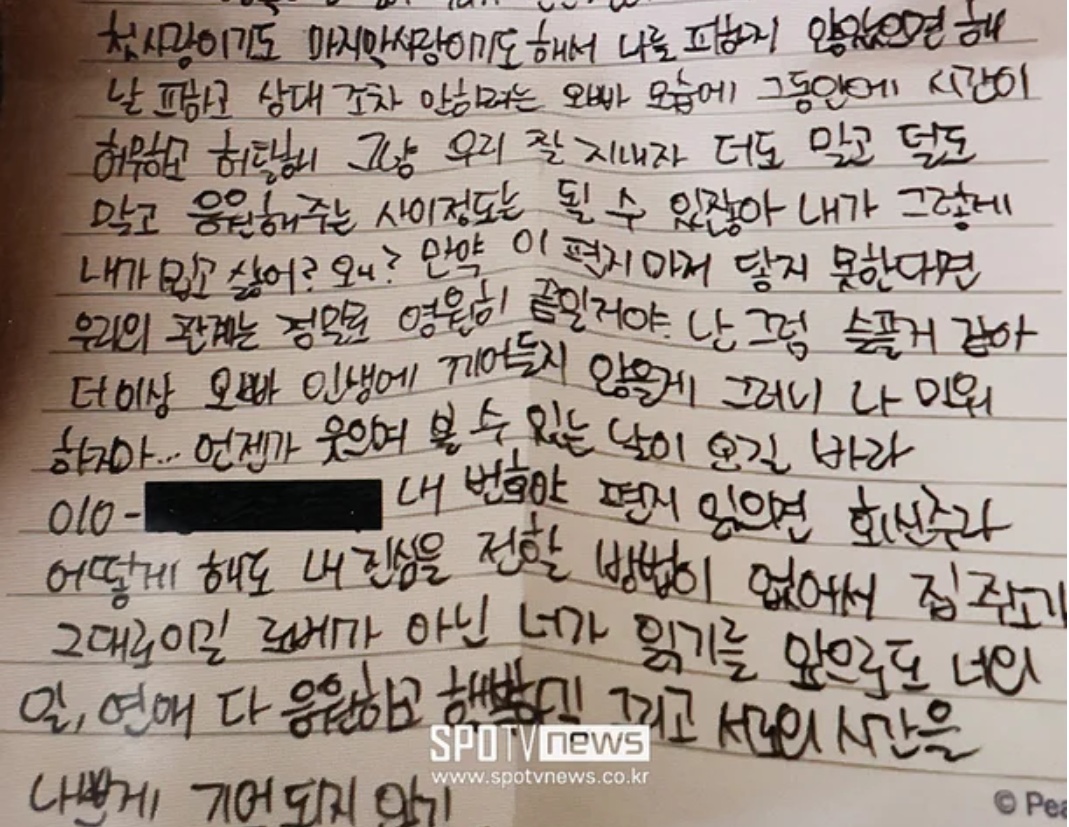 첫사랑이기도 마지막사랑이기도 해서 나를 피하지 않았으면 해
날 피하고 상대 조차 안하려는 오빠 모습에 그동안에 시간이
허무하고 허탈해 그냥 우리 잘 지내자 더도 말고 덜도
말고 응원해주는 사이정도는 될 수 있잖아 내가 그렇게
내가 밉고 싫어? 오니? 만약 이 편지마저 닿지 못한다면
우리의 관계는 정말로 영원히 끝일거야 난 그럼 슬플거 같아
더이상 오빠 인생에 끼어들지 않을게 그러니 나 미워
하지마... 언젠가 웃으며 볼 수 있는 날이 오길 바라
010- 내 번호야 편지 읽으면 회신주라
어떻게 해도 내 진심을 전할 방법이 없어서 집 주소가
그대로이길 로베가 아닌 너가 읽기를 앞으로도 너의
일, 연애 다 응원하고 행복하길 그리고 서로의 시간을
나쁘게 기억되지 않기
SPOTV news
www.spotvnews.co.kr
© Pea